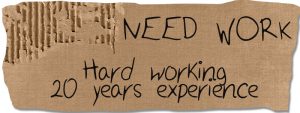 NEED WORK
Hard working
20 years experience